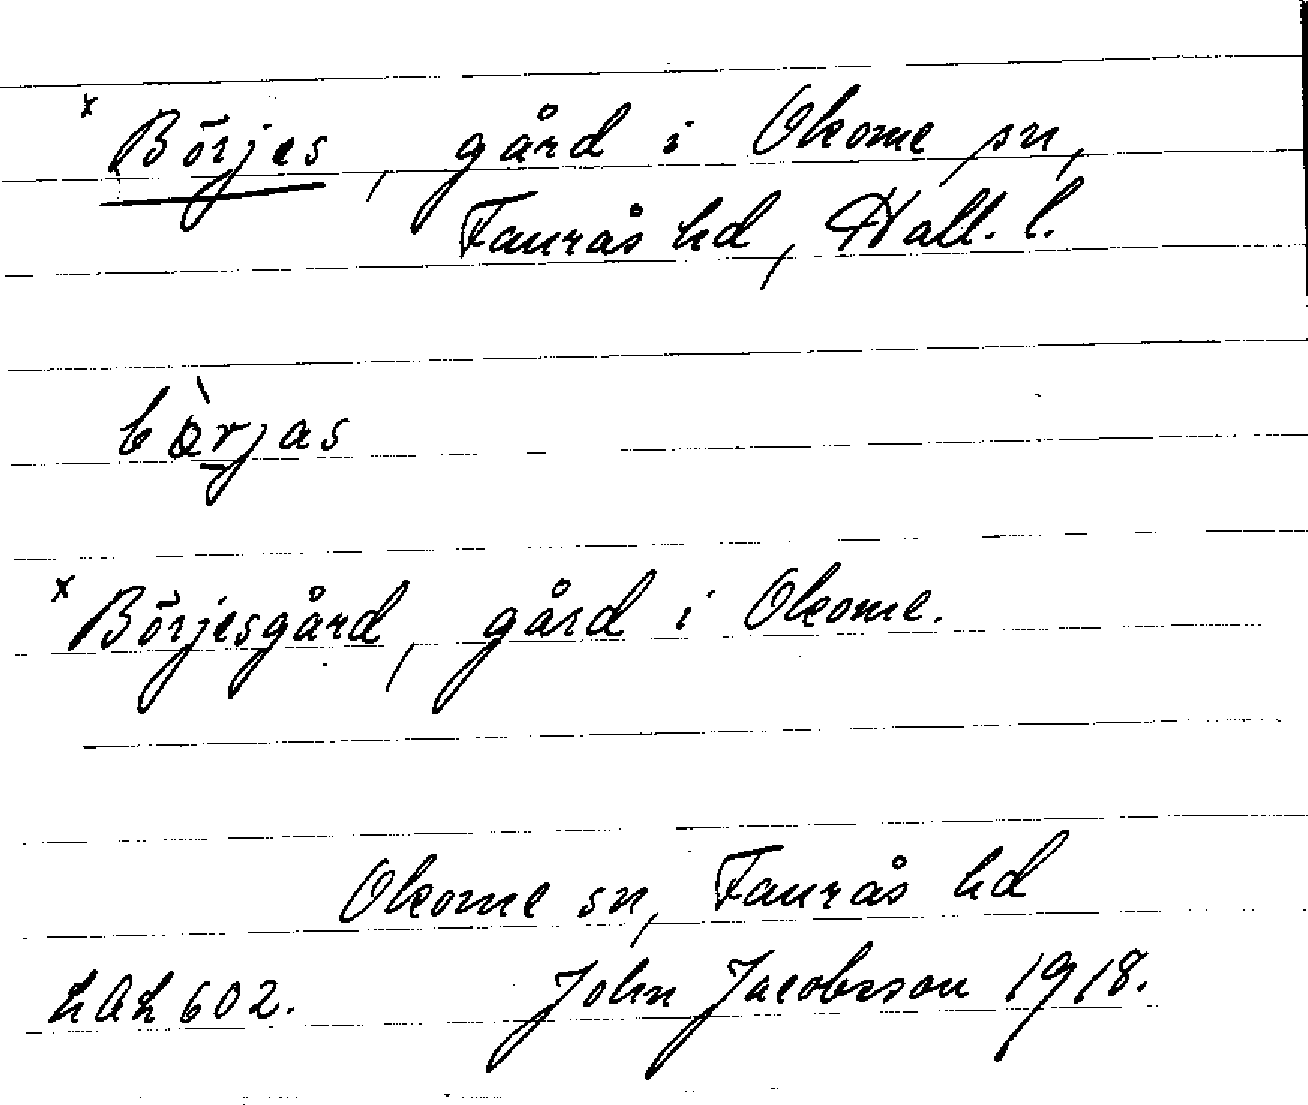 x Börjes, gård i Okome sn,
Faurås hd, Hall. l.
bò̀rjas
x Börjesgård, gård i Okome.
Okome sn, Faurås hd
LAL 602. John Jacobsson 1918.